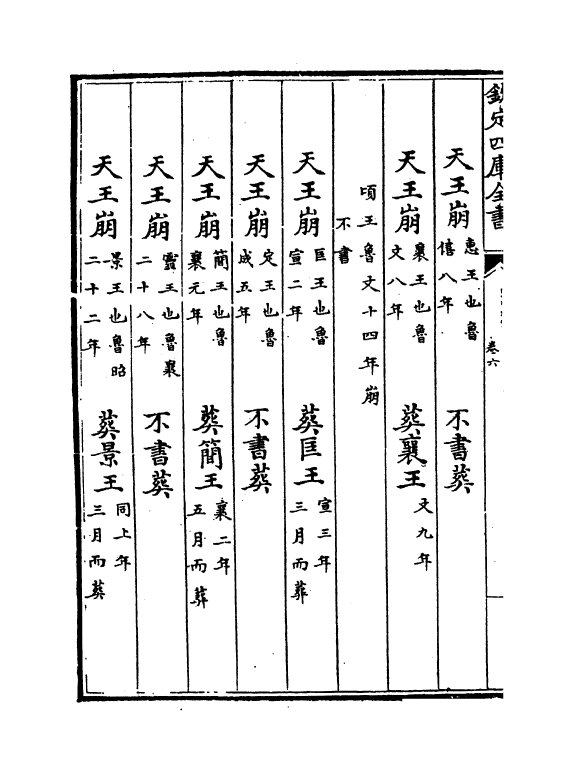 欽定四庫全書
卷六
天王崩 惠王也魯僖八年 不書葬
天王崩 襄王也魯文八年 葬襄王 文九年
頃王魯文十四年崩不書
天王崩 匡王也魯宣二年 葬匡王 宣三年三月而葬
天王崩 定王也魯成五年 不書葬
天王崩 簡王也魯襄元年 葬簡王 襄二年五月而葬
天王崩 靈王也魯襄二十八年 不書葬
天王崩 景王也魯昭二十二年 葬景王 同上年三月而葬